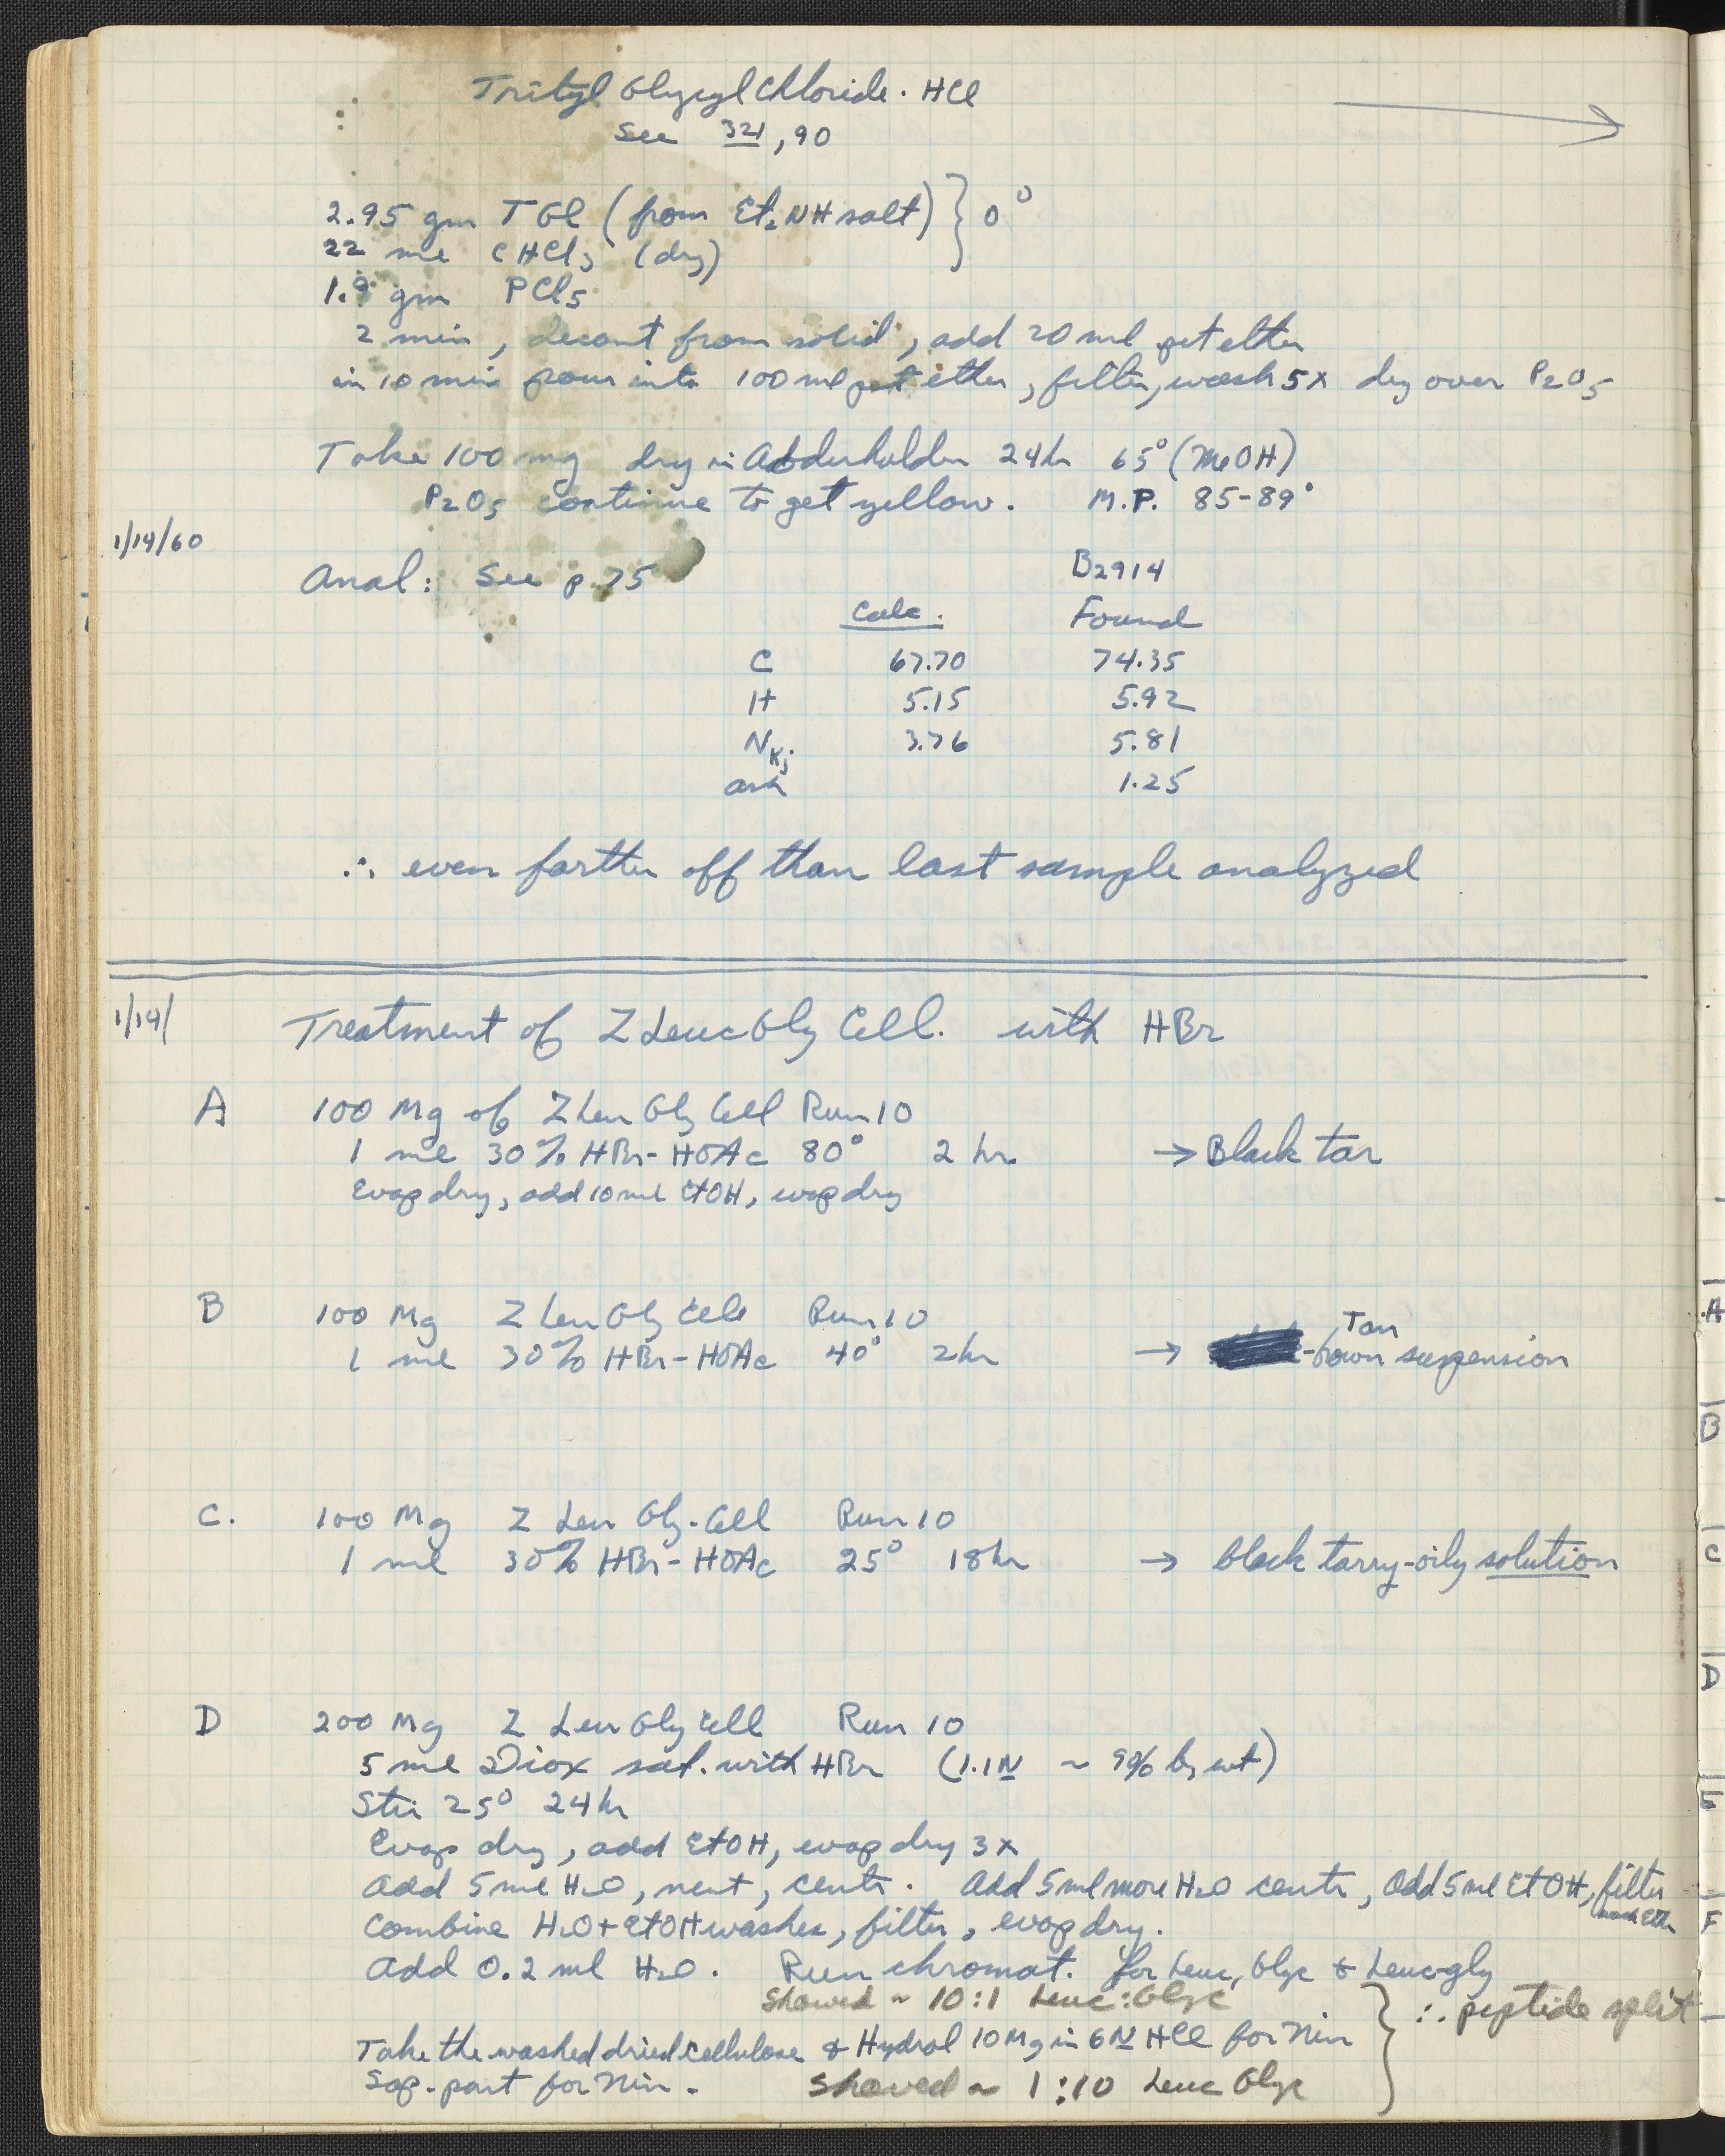 Trityl Glycyl Chloride · HCl
See 321, 90
2.95 gm TGl (from Et2NH salt) } 0°
22 ml CHCl3 (dry)
1.9 gm PCl5
2 min, decant from solid, add 20 ml pet ether
in 10 min pour into 100 ml pet ether, filter, wash 5x dry over P2O5
Take 100 mg dry in Abderhalden 24 hr 65° (MeOH)
P2O5 continue to get yellow. M.P. 85-89°
1/14/60
Anal: See p 75
B2914
Calc. Found
C 67.70 74.35
H 5.15 5.92
NKj 3.76 5.81
ash 1.25
∴ even farther off than last sample analyzed
1/14/ Treatment of Z Leuc Gly Cell. with HBr
A 100 Mg of Z Leu Gly Cell Run 10
1 ml 30% HBr-HOAc 80° 2 hr → Black tar
Evap dry, add 10 ml EtOH, evap dry
B 100 Mg Z Leu Gly Cell Run 10
Tan
1 ml 30% HBr-HOAc 40° 2 hr → -brown suspension
C. 100 Mg Z Leu Gly-Cell Run 10
1 ml 30% HBr-HOAc 25° 18 hr → black tarry-oily solution
D 200 Mg Z Leu Gly Cell Run 10
5 ml Diox sat. with HBr (1.1N ~ 9% by wt)
Stir 25° 24 hr
Evap dry, add EtOH, evap dry 3x
Add 5 ml H2O, neut, centr. Add 5 ml more H2O centr, Add 5 ml EtOH, filter
wash Eth
Combine H2O + EtOH washes, filter, evap dry.
Add 0.2 ml H2O. Run chromat. for Leuc, Glyc & Leuc-gly
Showed ~ 10:1 Leuc:Glyc
} ∴ peptide split
Take the washed dried cellulose & Hydrol 10 Mg in 6N HCl for Nin
Sap. part for Nin. Showed ~ 1:10 Leuc Glyc
A
B
C
D
E
F